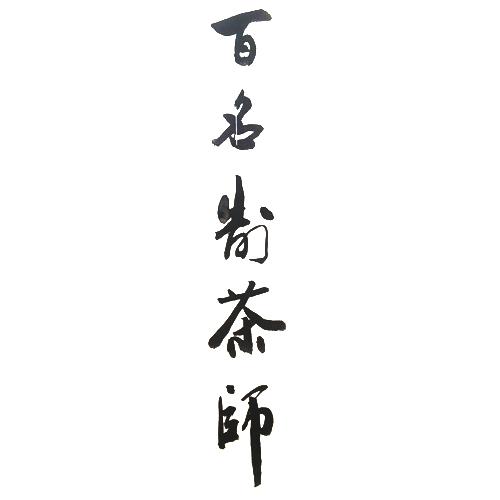 百名制茶師